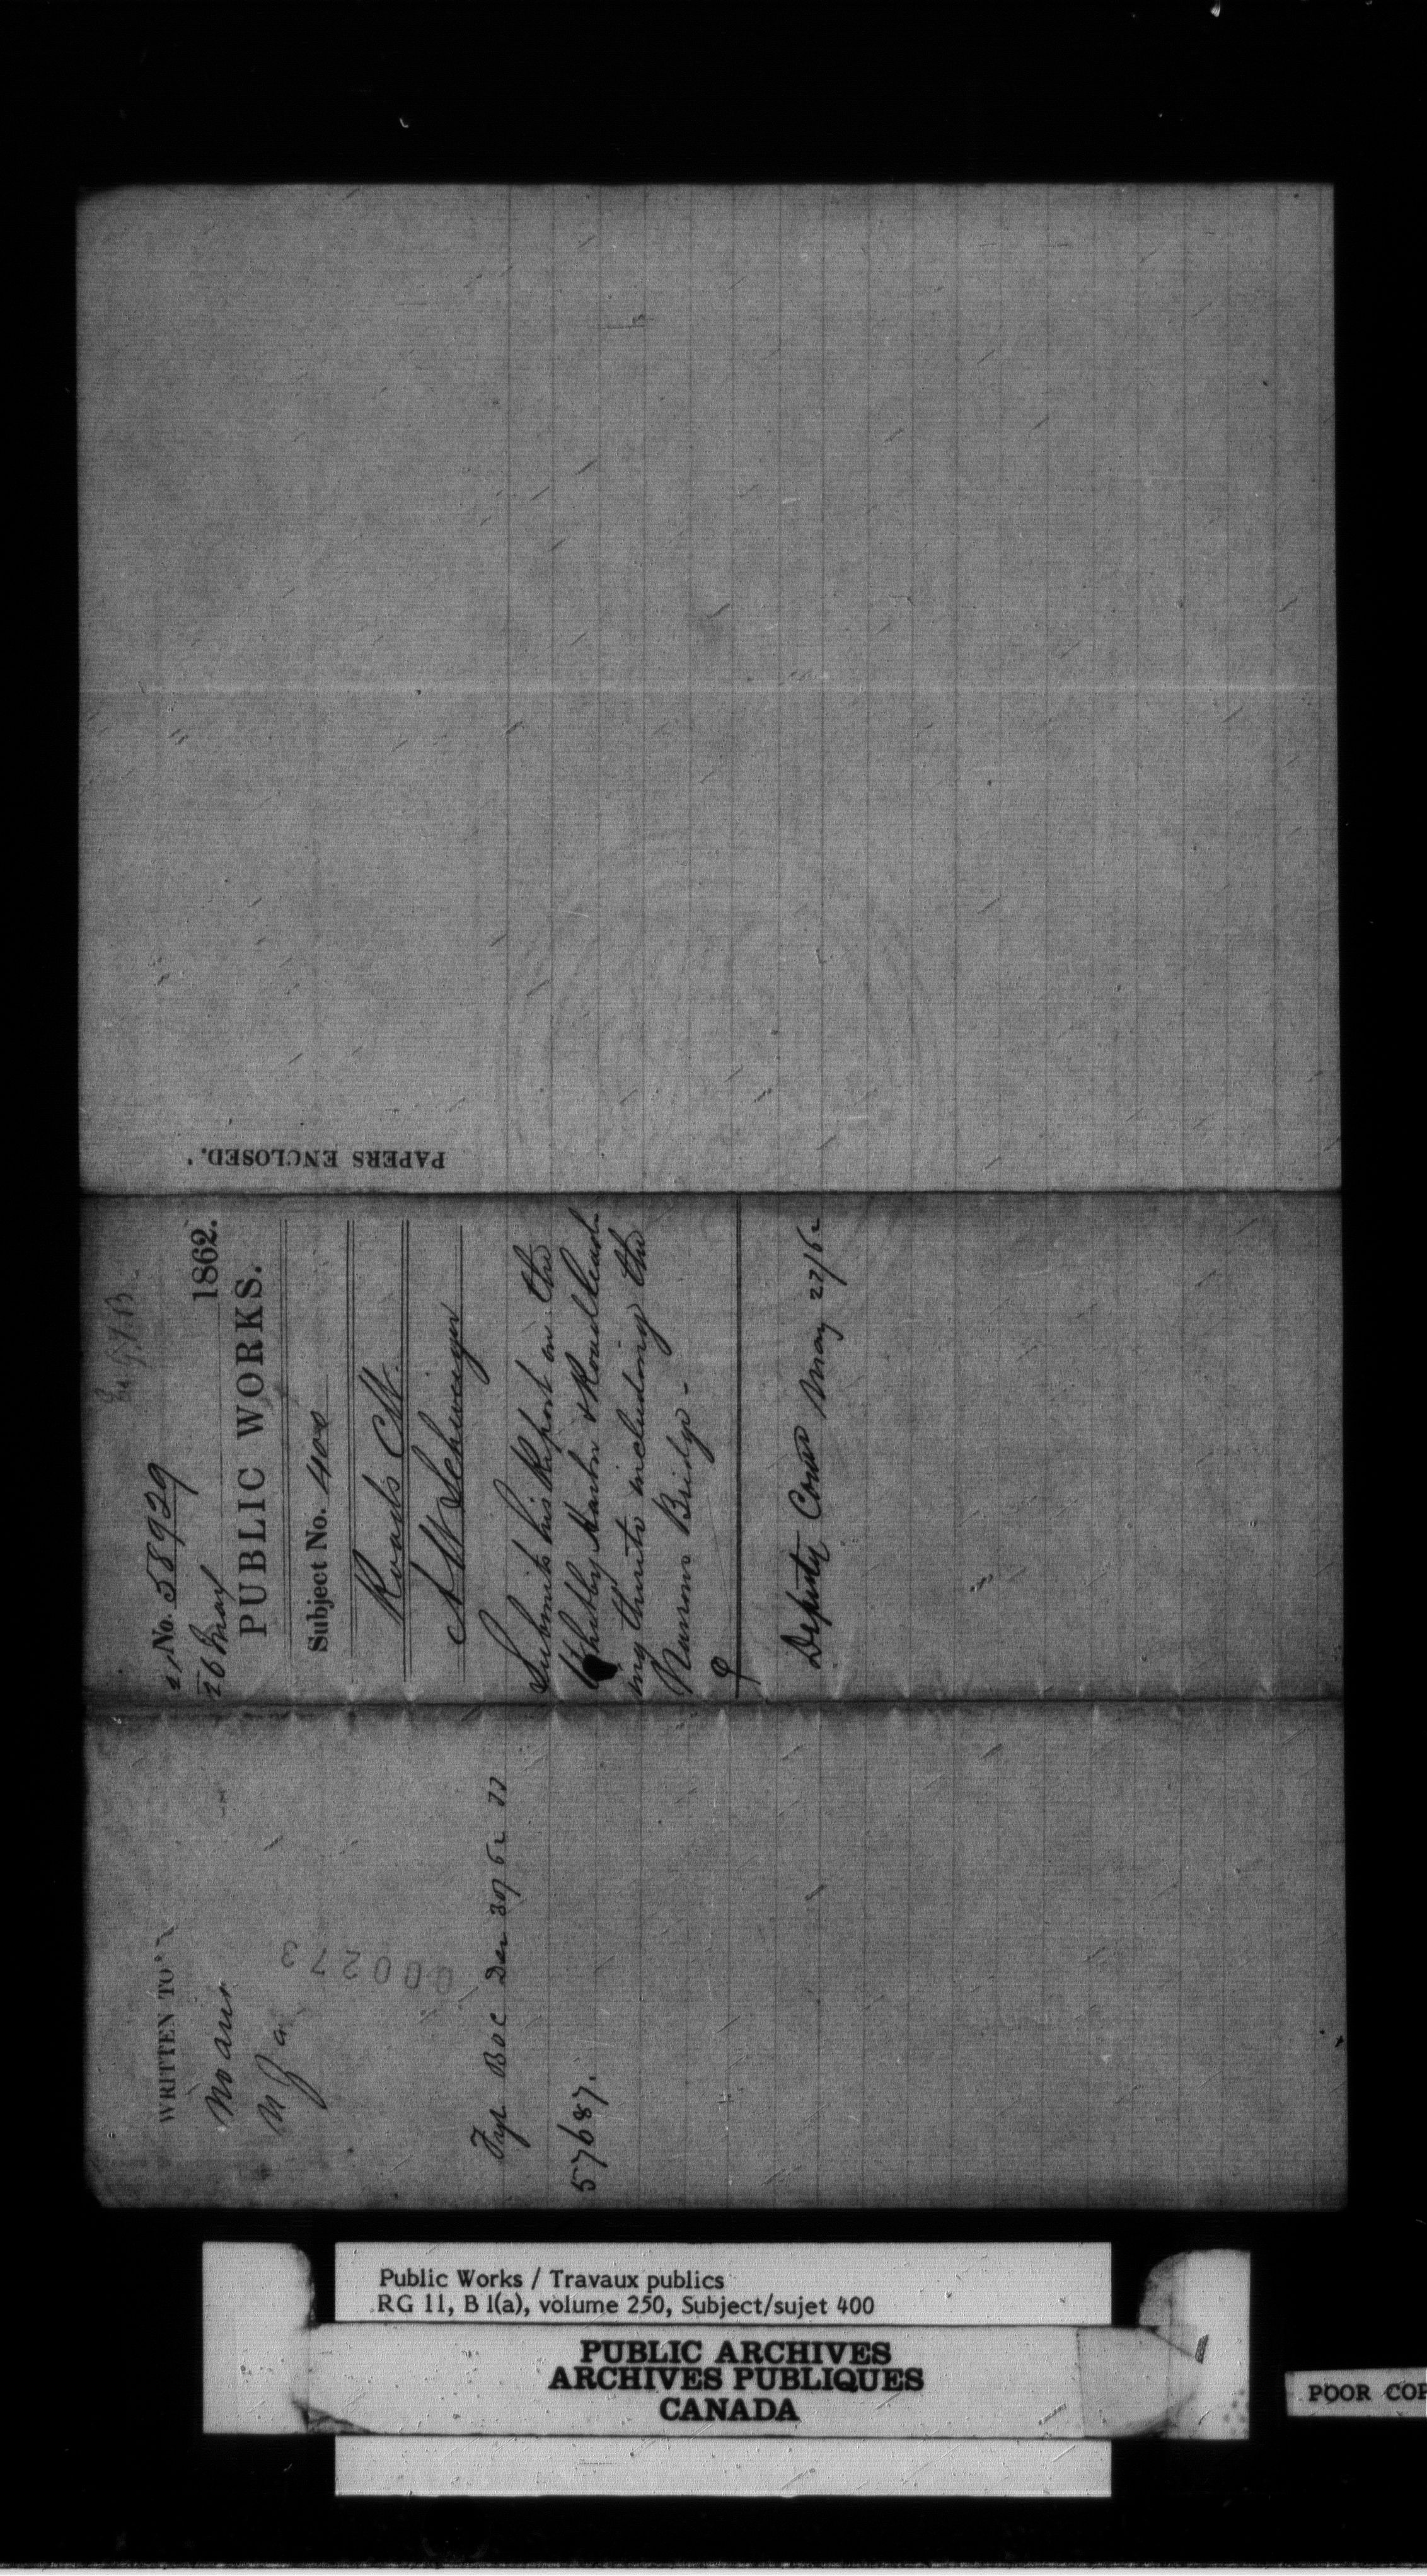 PAPERS ENCLOSED.
No. 58929
26 May 1862.
PUBLIC WORKS.
Subject No. 400
Roads CW.
A W Schwieger
Submits his Report on the
Whitby Harbor & Road lead
ing thereto including the
Narrows Bridge -
Deputy Comr May 27/62
WRITTEN TO
000273
57687.
Public Works / Travaux publics
RG 11, B 1(a), volume 250, Subject/sujet 400
PUBLIC ARCHIVES
ARCHIVES PUBLIQUES
CANADA
POOR COP